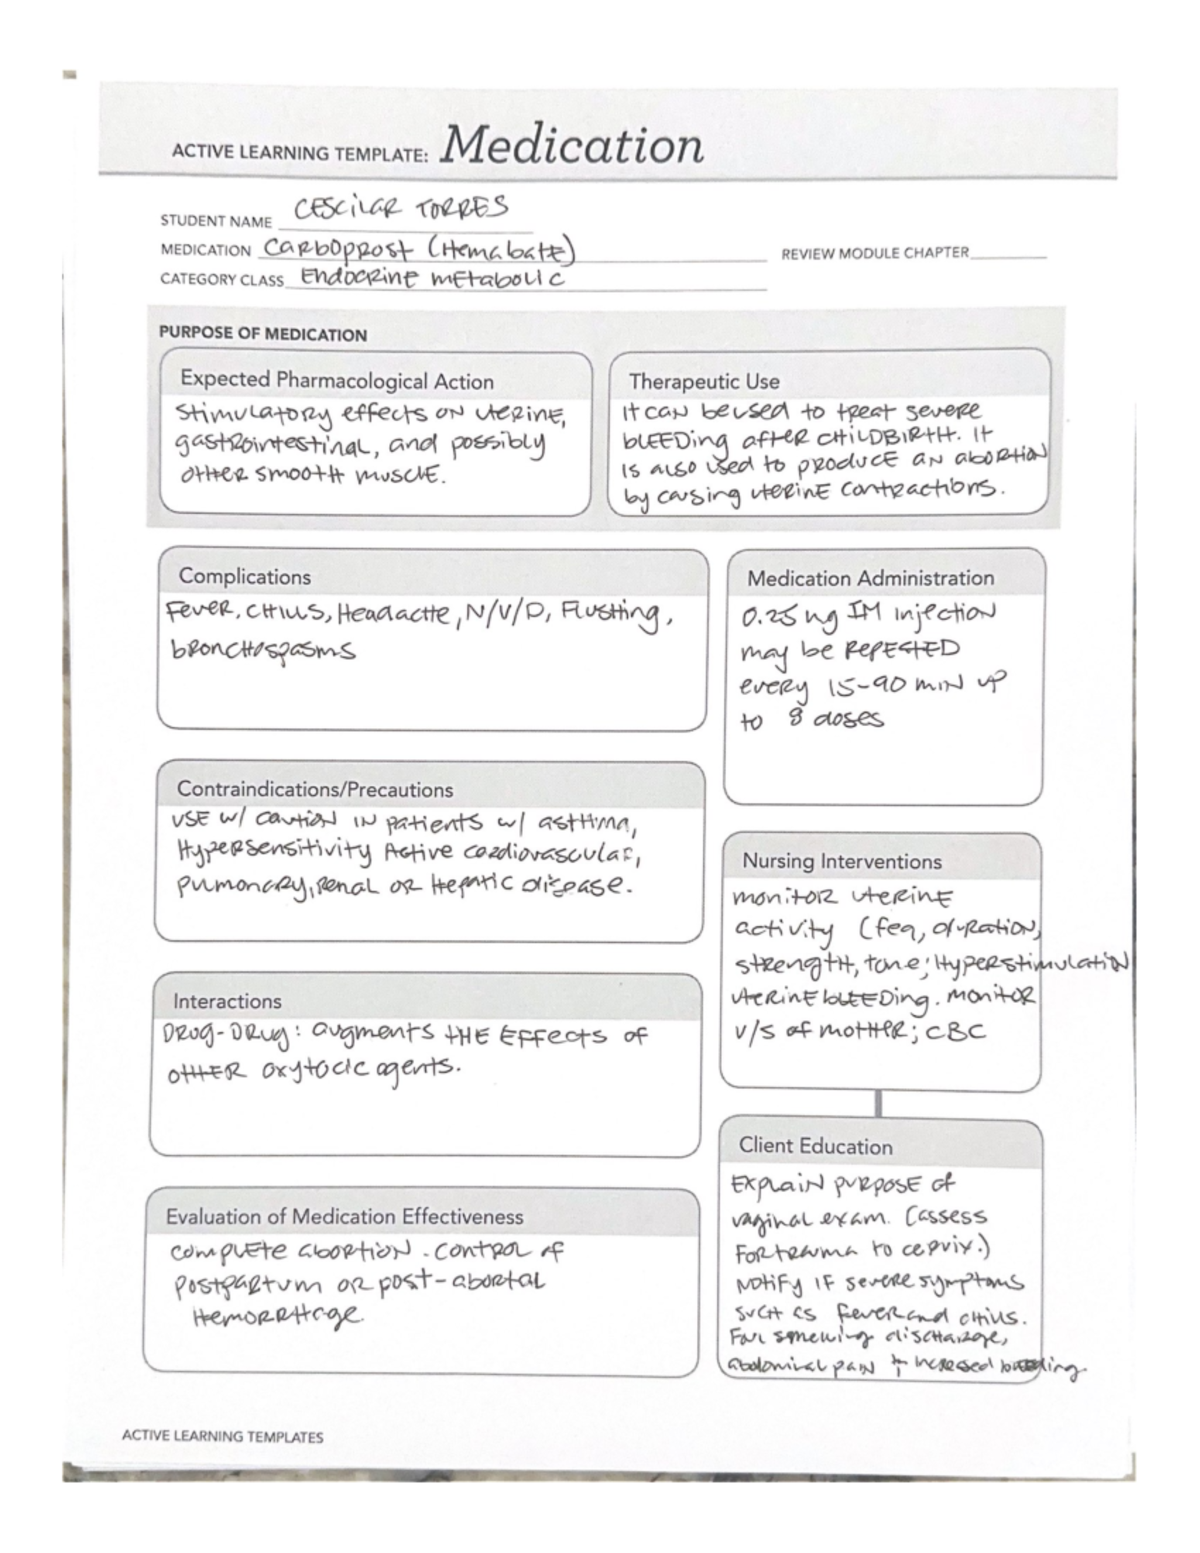 ACTIVE LEARNING TEMPLATE: Medication
STUDENT NAME CESCILAR TORRES
MEDICATION Carboprost (Hemabate)
REVIEW MODULE CHAPTER
CATEGORY CLASS Endocrine metabolic
PURPOSE OF MEDICATION
Expected Pharmacological Action
Stimulatory effects on uterine,
gastrointestinal, and possibly
other smooth muscle.
Therapeutic Use
It can be used to treat severe
bleeding after childbirth. It
is also used to produce an abortion
by causing uterine contractions.
Complications
Fever, chills, Headache, N/V/D, Flushing,
bronchospasms
Medication Administration
0.25 mg IM injection
may be repeated
every 15-90 min up
to 8 doses
Contraindications/Precautions
Use w/ caution in patients w/ asthma,
Hypersensitivity Active cardiovascular,
pulmonary, renal or Hepatic disease.
Nursing Interventions
monitor uterine
activity (feq, duration,
strength, tone; Hyperstimulation
uterine bleeding. monitor
v/s of mother; CBC
Interactions
Drug-Drug: augments the effects of
other oxytocic agents.
Client Education
Explain purpose of
vaginal exam. (assess
for trauma to cervix.)
Notify if severe symptoms
such as fever and chills.
Foul smelling discharge,
abdominal pain + increased bleeding
Evaluation of Medication Effectiveness
complete abortion. control of
postpartum or post-abortal
Hemorrhage.
ACTIVE LEARNING TEMPLATES